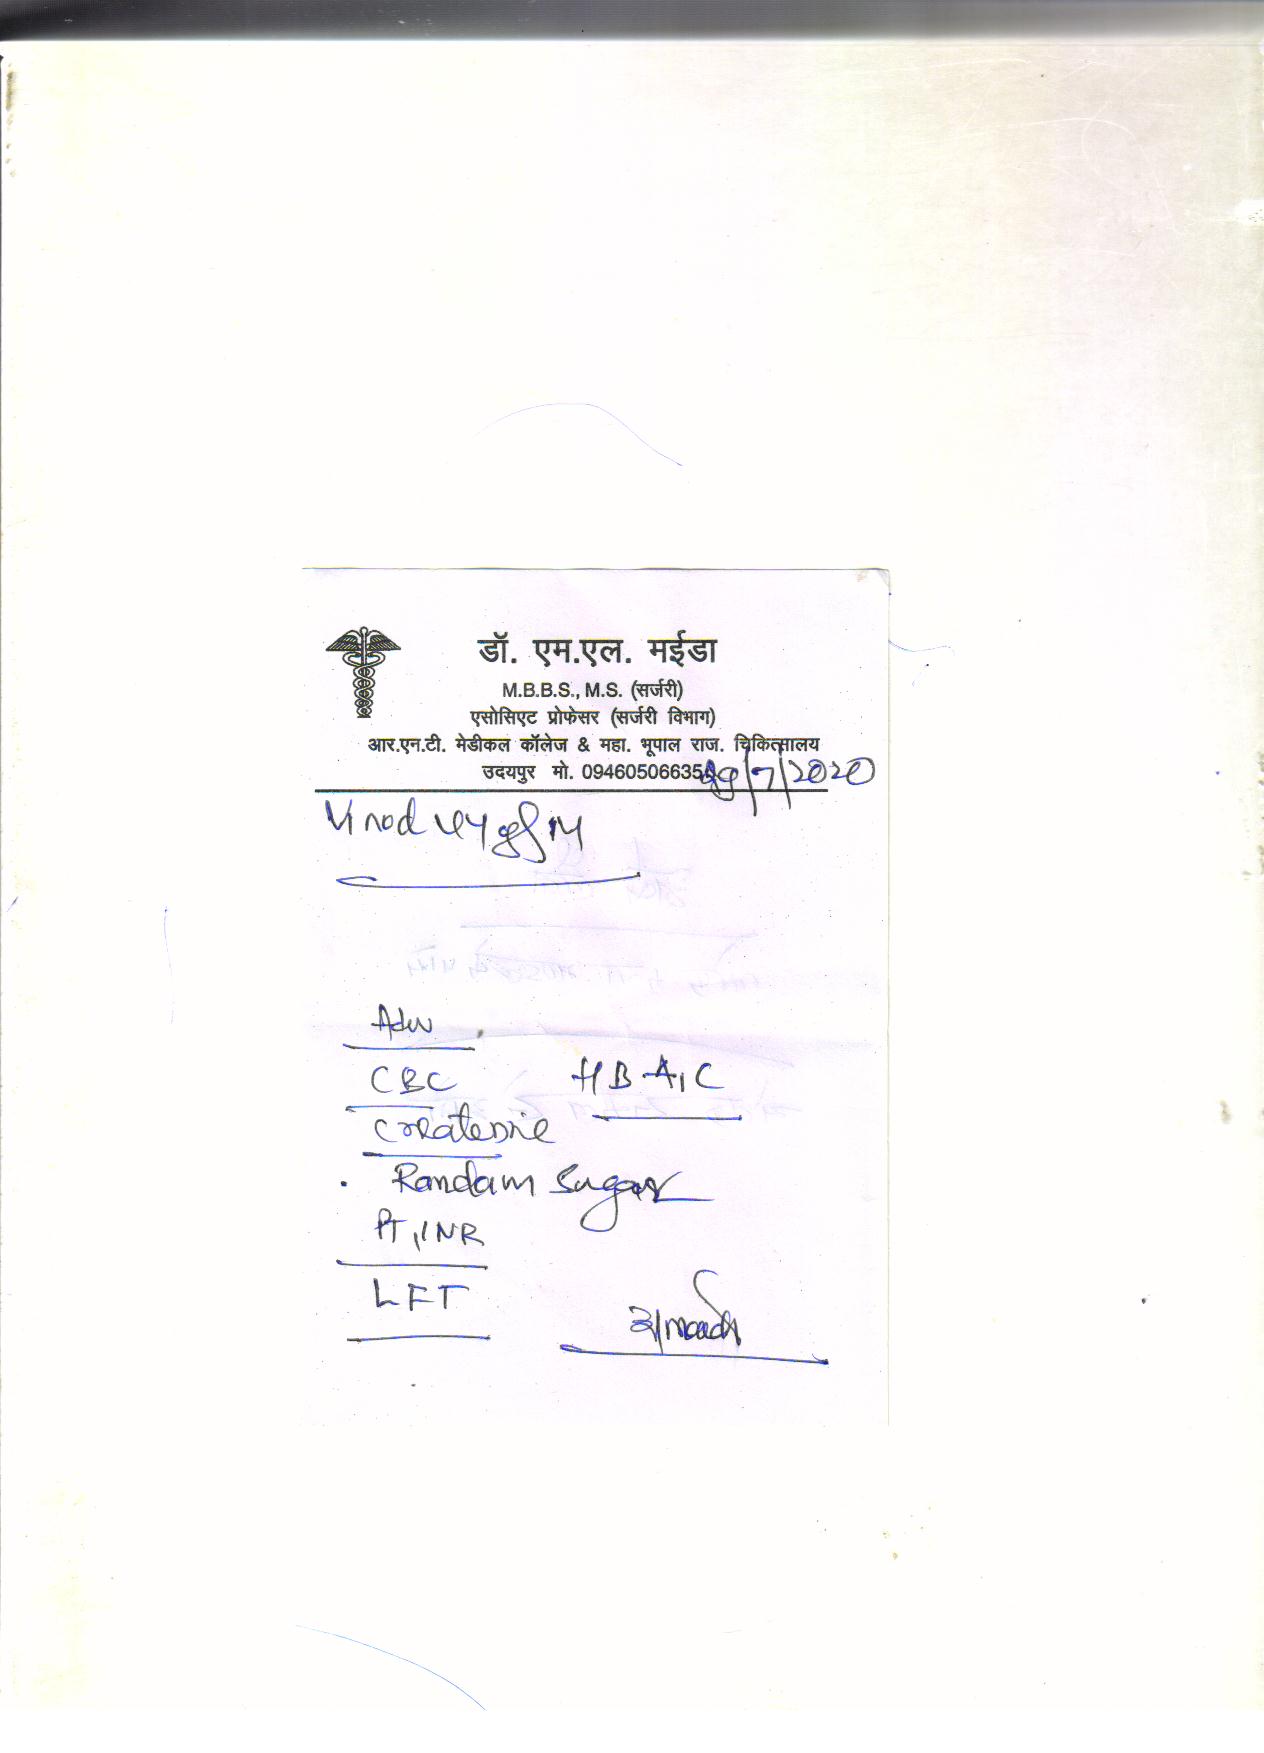 डॉ. एम.एल. मईडा
M.B.B.S., M.S. (सर्जरी)
एसोसिएट प्रोफेसर (सर्जरी विभाग)
आर.एन.टी. मेडीकल कॉलेज & महा. भूपाल राज. चिकित्सालय
उदयपुर मो. 09460506635
/7/2020
Vinod
Adv
CBC HBA1C
Createnie
Randam Sugar
PT, INR
LFT